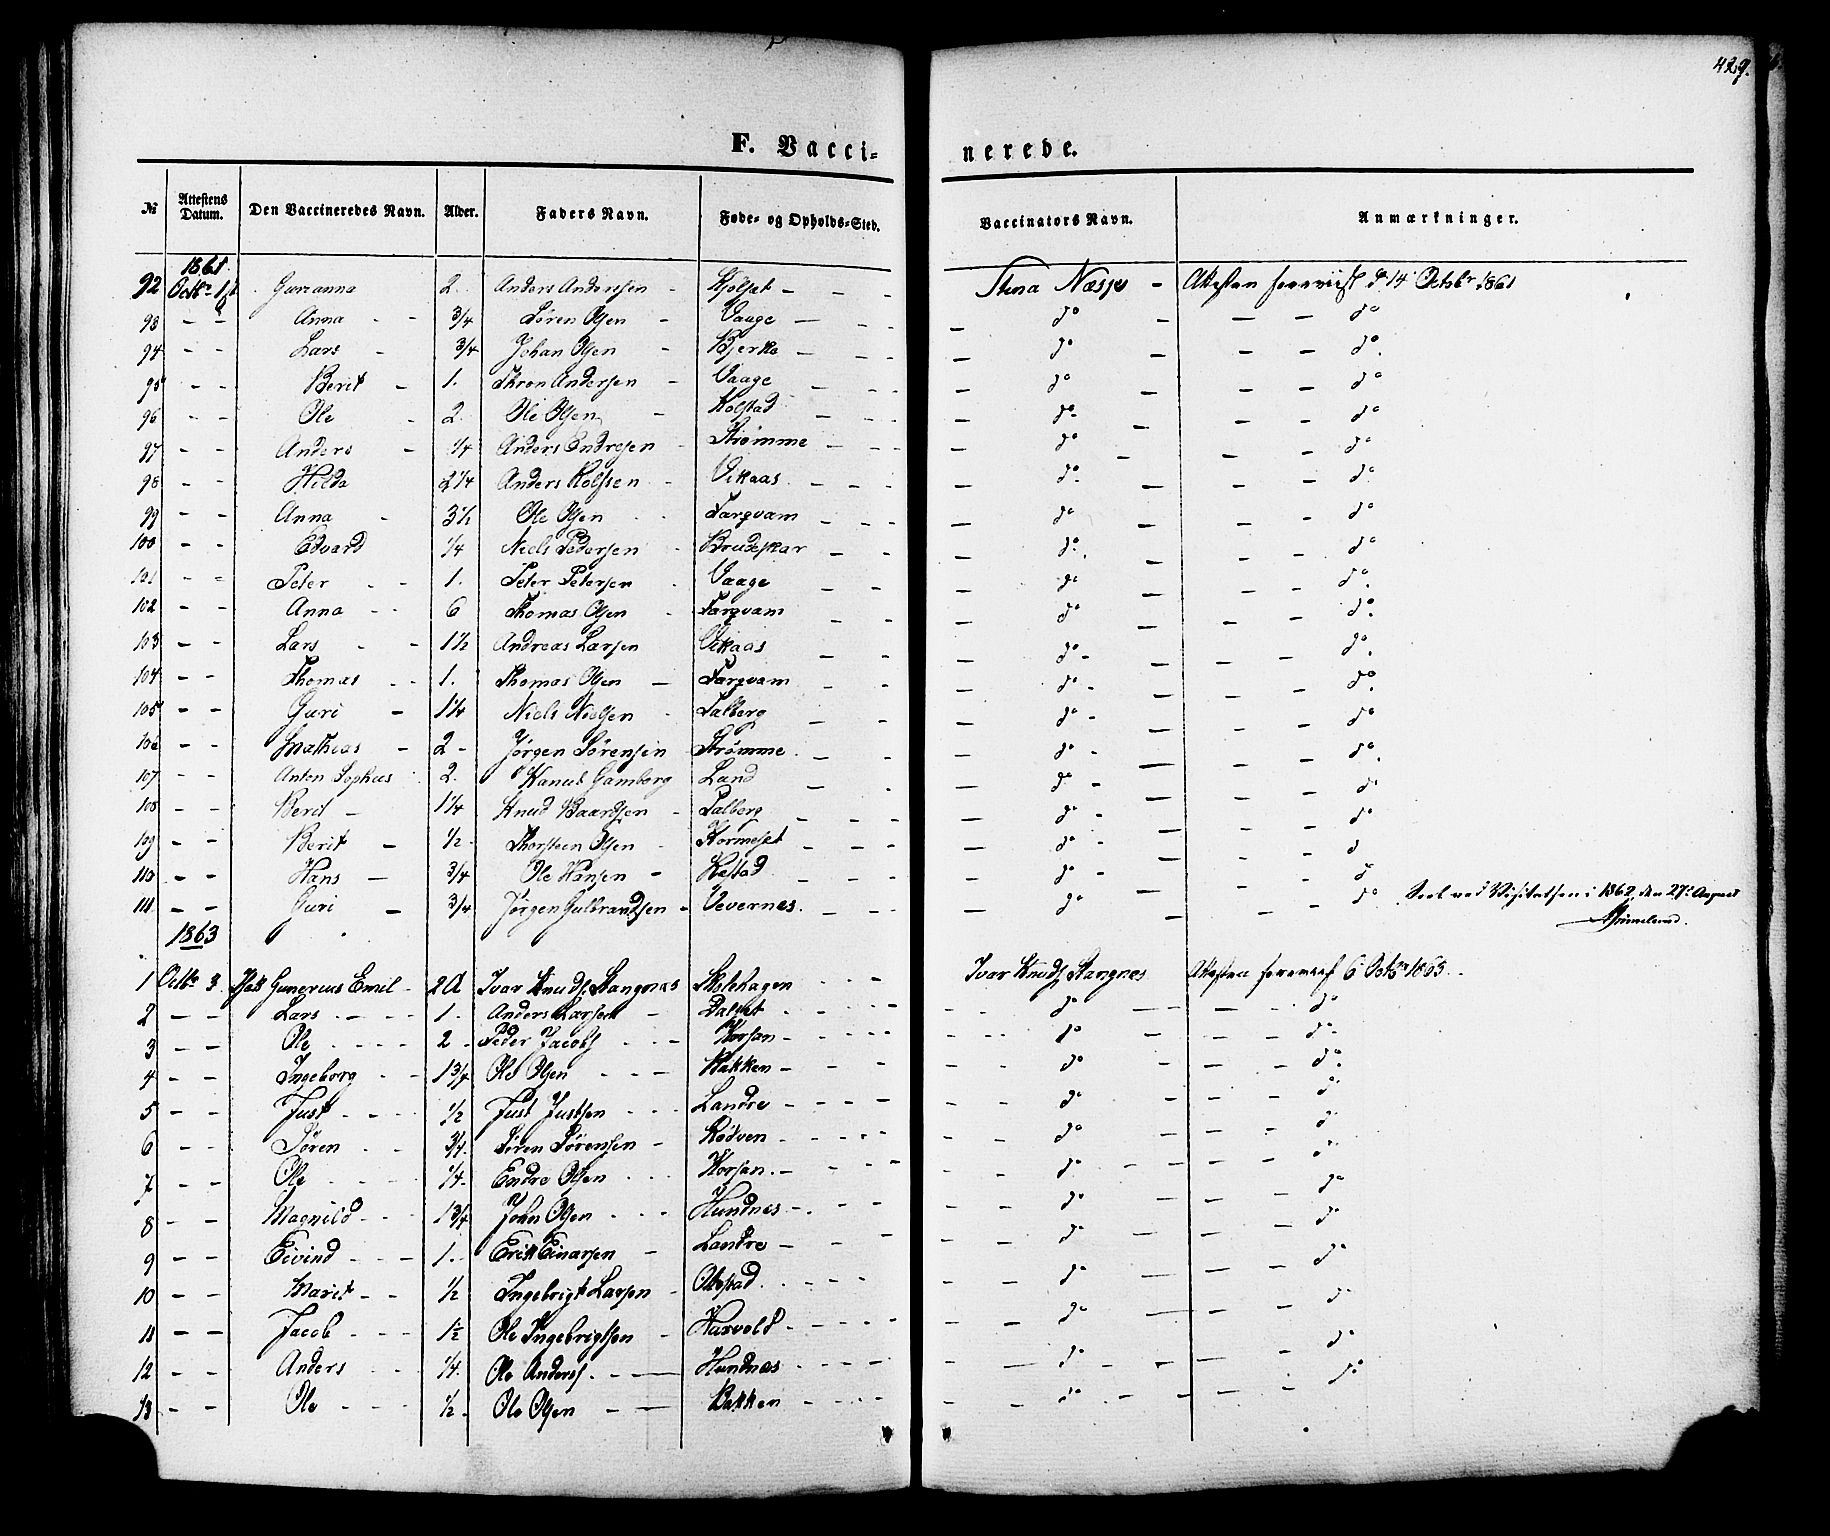 429.
F. Vaccinerede.
№ Attestens Datum. Den Vaccineredes Navn. Alder. Faders Navn. Føde- og Opholds-Sted. Vaccinators Navn. Anmærkninger.
1861
92 Octbr 1st Gurianna 2 Anders Andersen - Kjølset - - - Stina Næsje - Attesten foreviist d. 14 Octobr 1861
93 - - Anna - - 3/4 Søren Olsen - Vaage - - - - do - - - do
94 - - Lars - 3/4 Johan Olsen - Bjerke - - - - do - - - do
95 - - Berit - 1. Thron Andersen - Vaage - - - - do - - - do
96 - - Ole - 2 Ole Olsen - Kolstad - - - - do - - - do
97 - - Anders - 1/4 Anders Endresen - Strømme - - - - do - - - do
98 - - Hilda 2 1/4 Anders Rolfsen - Vikaas - - - - do - - - do
99 - - Anna - 3 1/2 Ole Olsen - - Fargvam - - - - do - - - do
100 - - Edvard 1/4 Niels Pedersen - Brudeskar - - - do - - - do
101 - - Peter - - 1. Peter Petersen - Vaage - - - - do - - - do
102 - - Anna - - 6 Thomas Olsen - Fargvam - - - do - - - do
103 - - Lars - - 1 1/2 Andreas Larsen Vikaas - - - do - - - do
104 - - Thomas - - 1. Thomas Olsen - Fargvam - - - do - - - do
105 - - Guri - 1 1/4 Niels Nielsen - Talberg - - - do - - - do
106 - - Mathias - 2 - Jørgen Sørensen Strømme - - - do - - - do
107 - - Anton Sophus 2. Hanut Gamborg Land - - - do - - - do
108 - - Berit - 1 1/4 Knud Baardsen - Talberg - - - do - - - do
109 - - Berit - 1/2 Thorsteen Olsen - Hormeset - - - do - - - d
110 - - Hans - 3/4 Ole Hansen - - - - do - - - d
111 - - Guri - 3/4 Jørgen Gulbrandsen - Vevernes. - - - do - - - do Seet ved Visitatsen i 1862, den 27de August
1863
1 Octbr 3 Gunerius Emil - 2 A Ivar Knuds. Stangnes Skolehagen - - - Ivar Knuds. Stangnes Attesten foreviist 6 Octbr 1863.
2 - - Lars - - - 1. Anders Larsen - Dalset - - - - - do - - - do
3 - - Ole - - - - 2 - Peder Jacobs. - - - Horsan - - - - - - do - - - do
4 - - Ingeborg - - 1 3/4 Ole Olsen - - - Bakken - - - - - do - - - do
5 - - Just - - - 1/2 Just Justsen - - - Landre - - - - - - do - - - do
6 - - Søren - - 3/4. Søren Sørensen - Rødven - - - - - - do - - - d
7 - - Ole - - - - 1/4. Endre Olsen - - - Horsan. - - - - - - do - - - - do
8 - - Magnild - - - 1 3/4 John Olsen - - - Hundnes - - - - - do - - - do
9 - - Eivind - - - 1. - Erik Einarsen - Landre - - - - do - - - do
10 - - Marit - - 1/2 Ingebrigt Larsen - - - - - - - do - - - do
11 - - Jacob - - - 1 1/2 Ole Ingebrigtsen - Husvold - - - - - - do - - - do
12 - - Anders - - - 1/4. Ole Anders. - - - Hundnes - - - - - - do - - - do
13 - - Ole - - - 1/2. Ole Olsen - - Bakken - - - - - do - - - do